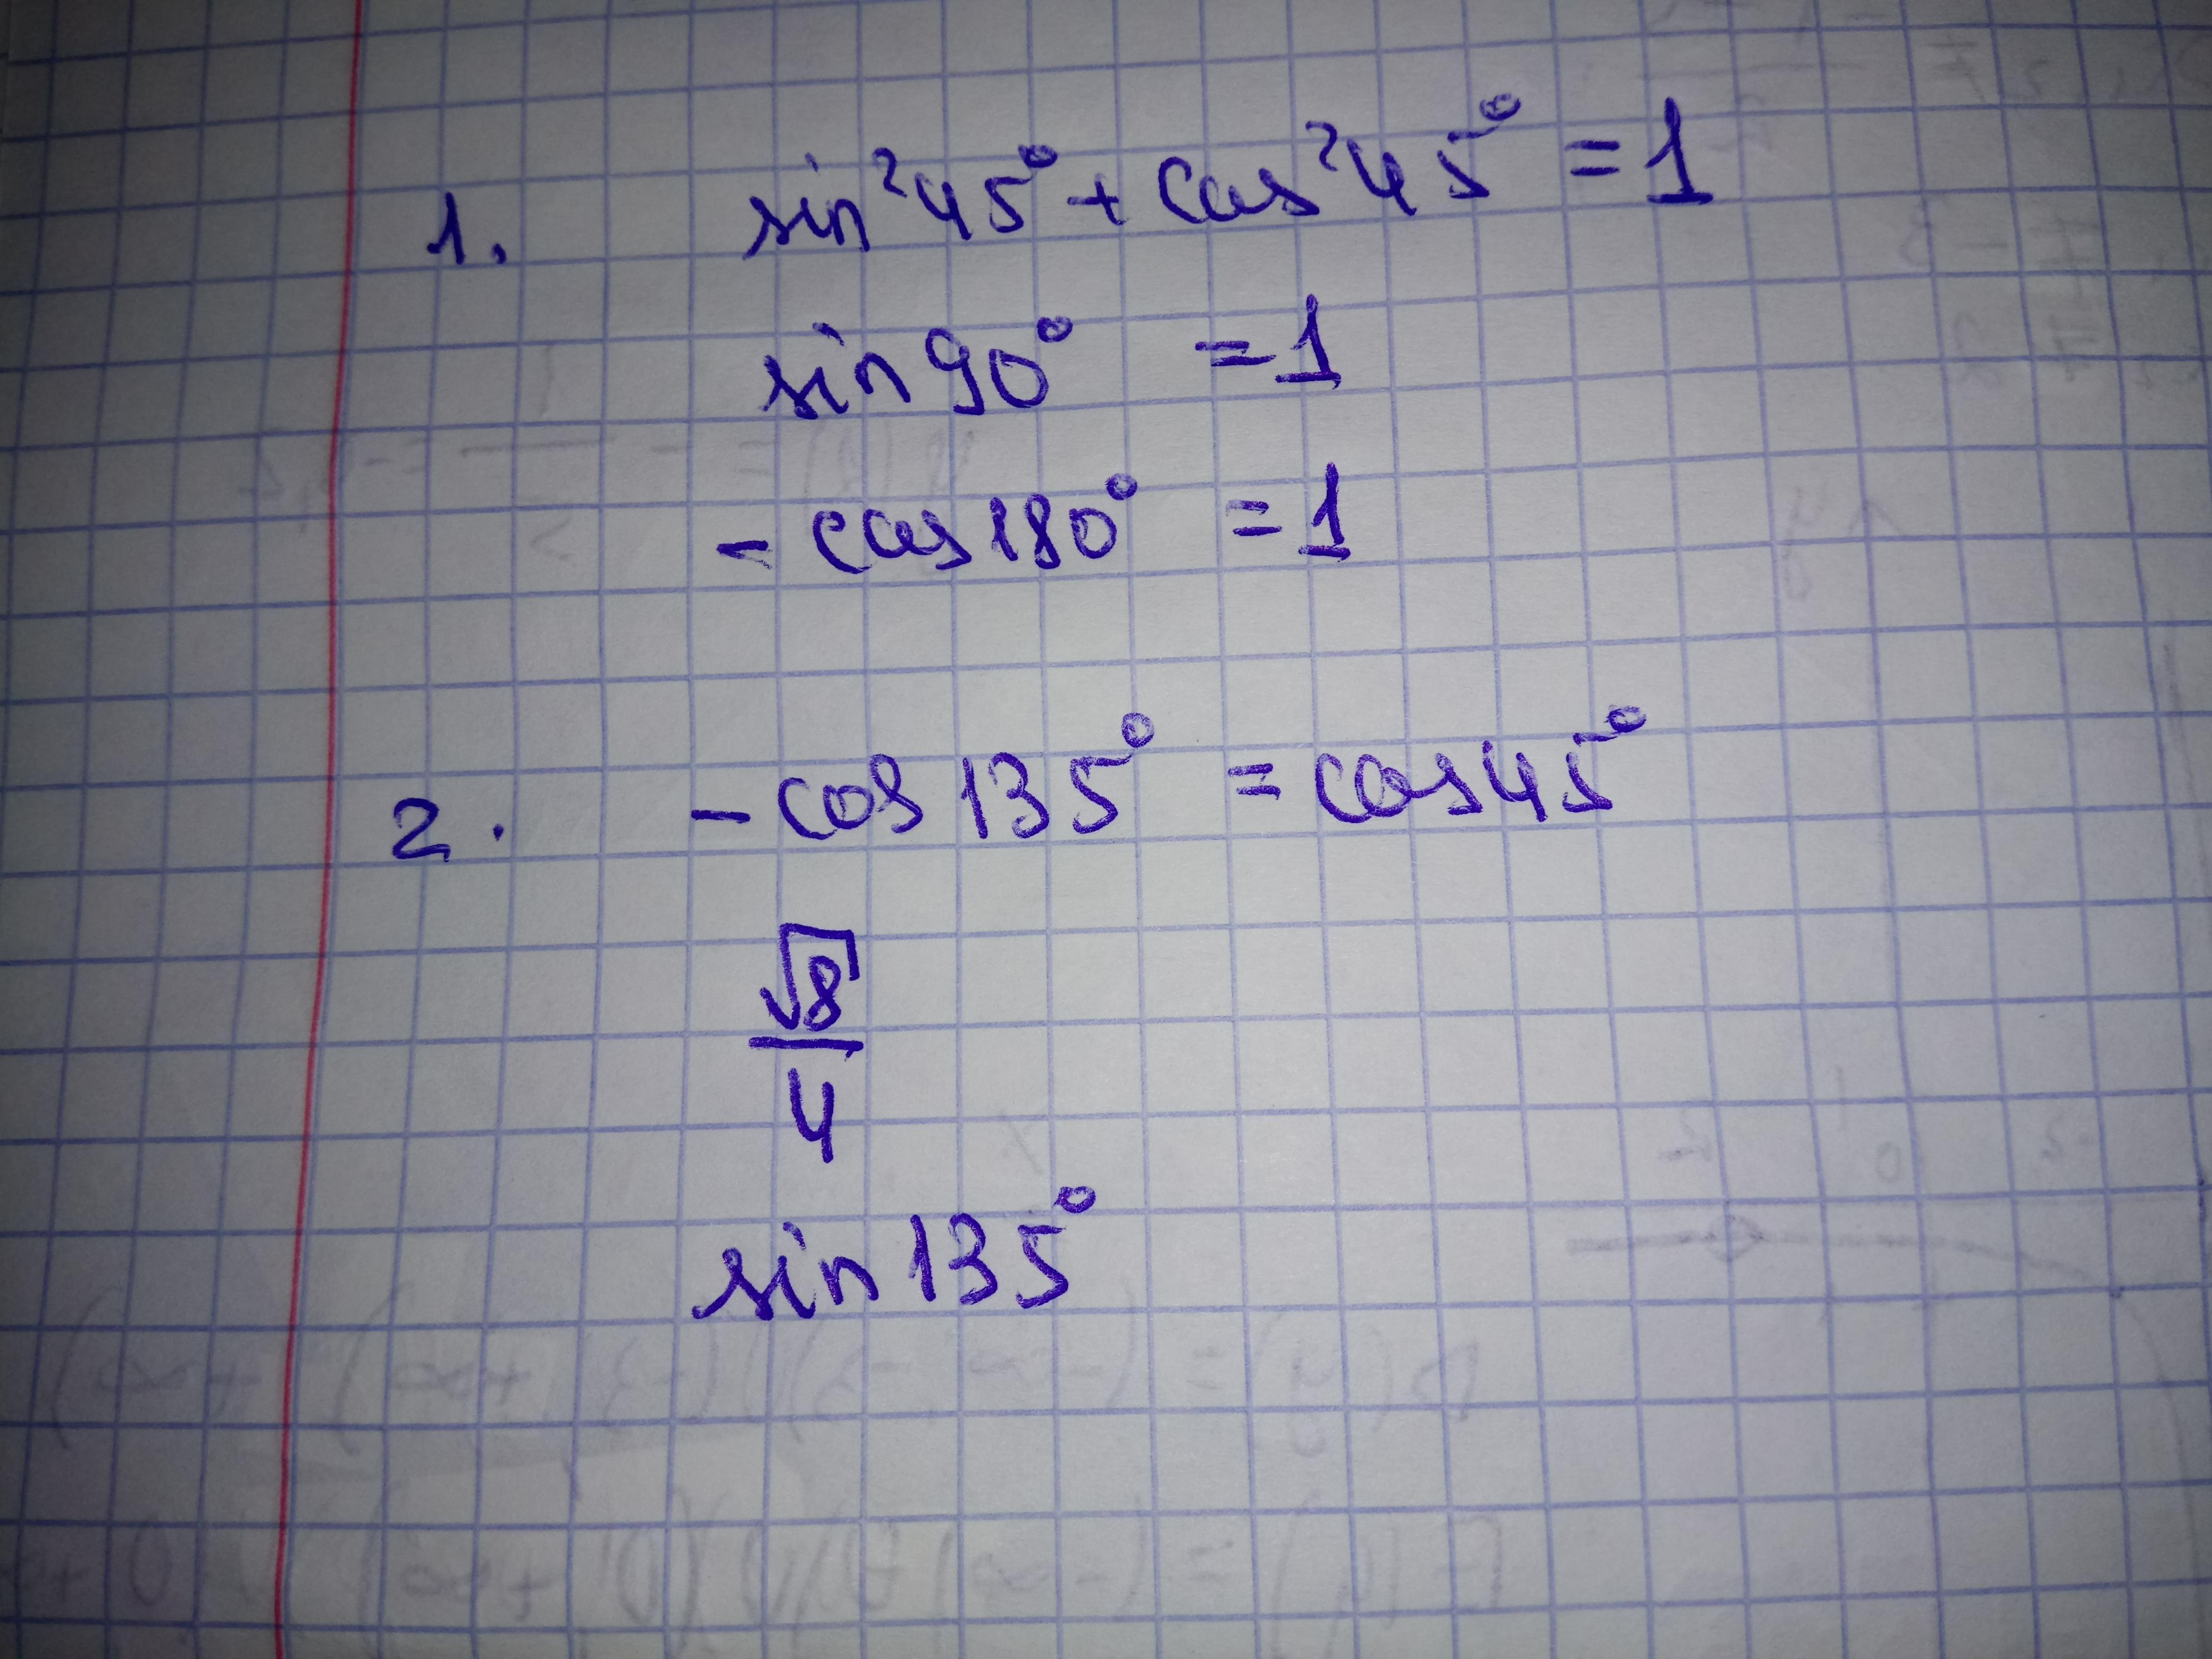 1. sin²45° + cos²45° = 1
sin 90° = 1
- cos 180° = 1
2. - cos 135° = cos 45°
√8
4
sin 135°